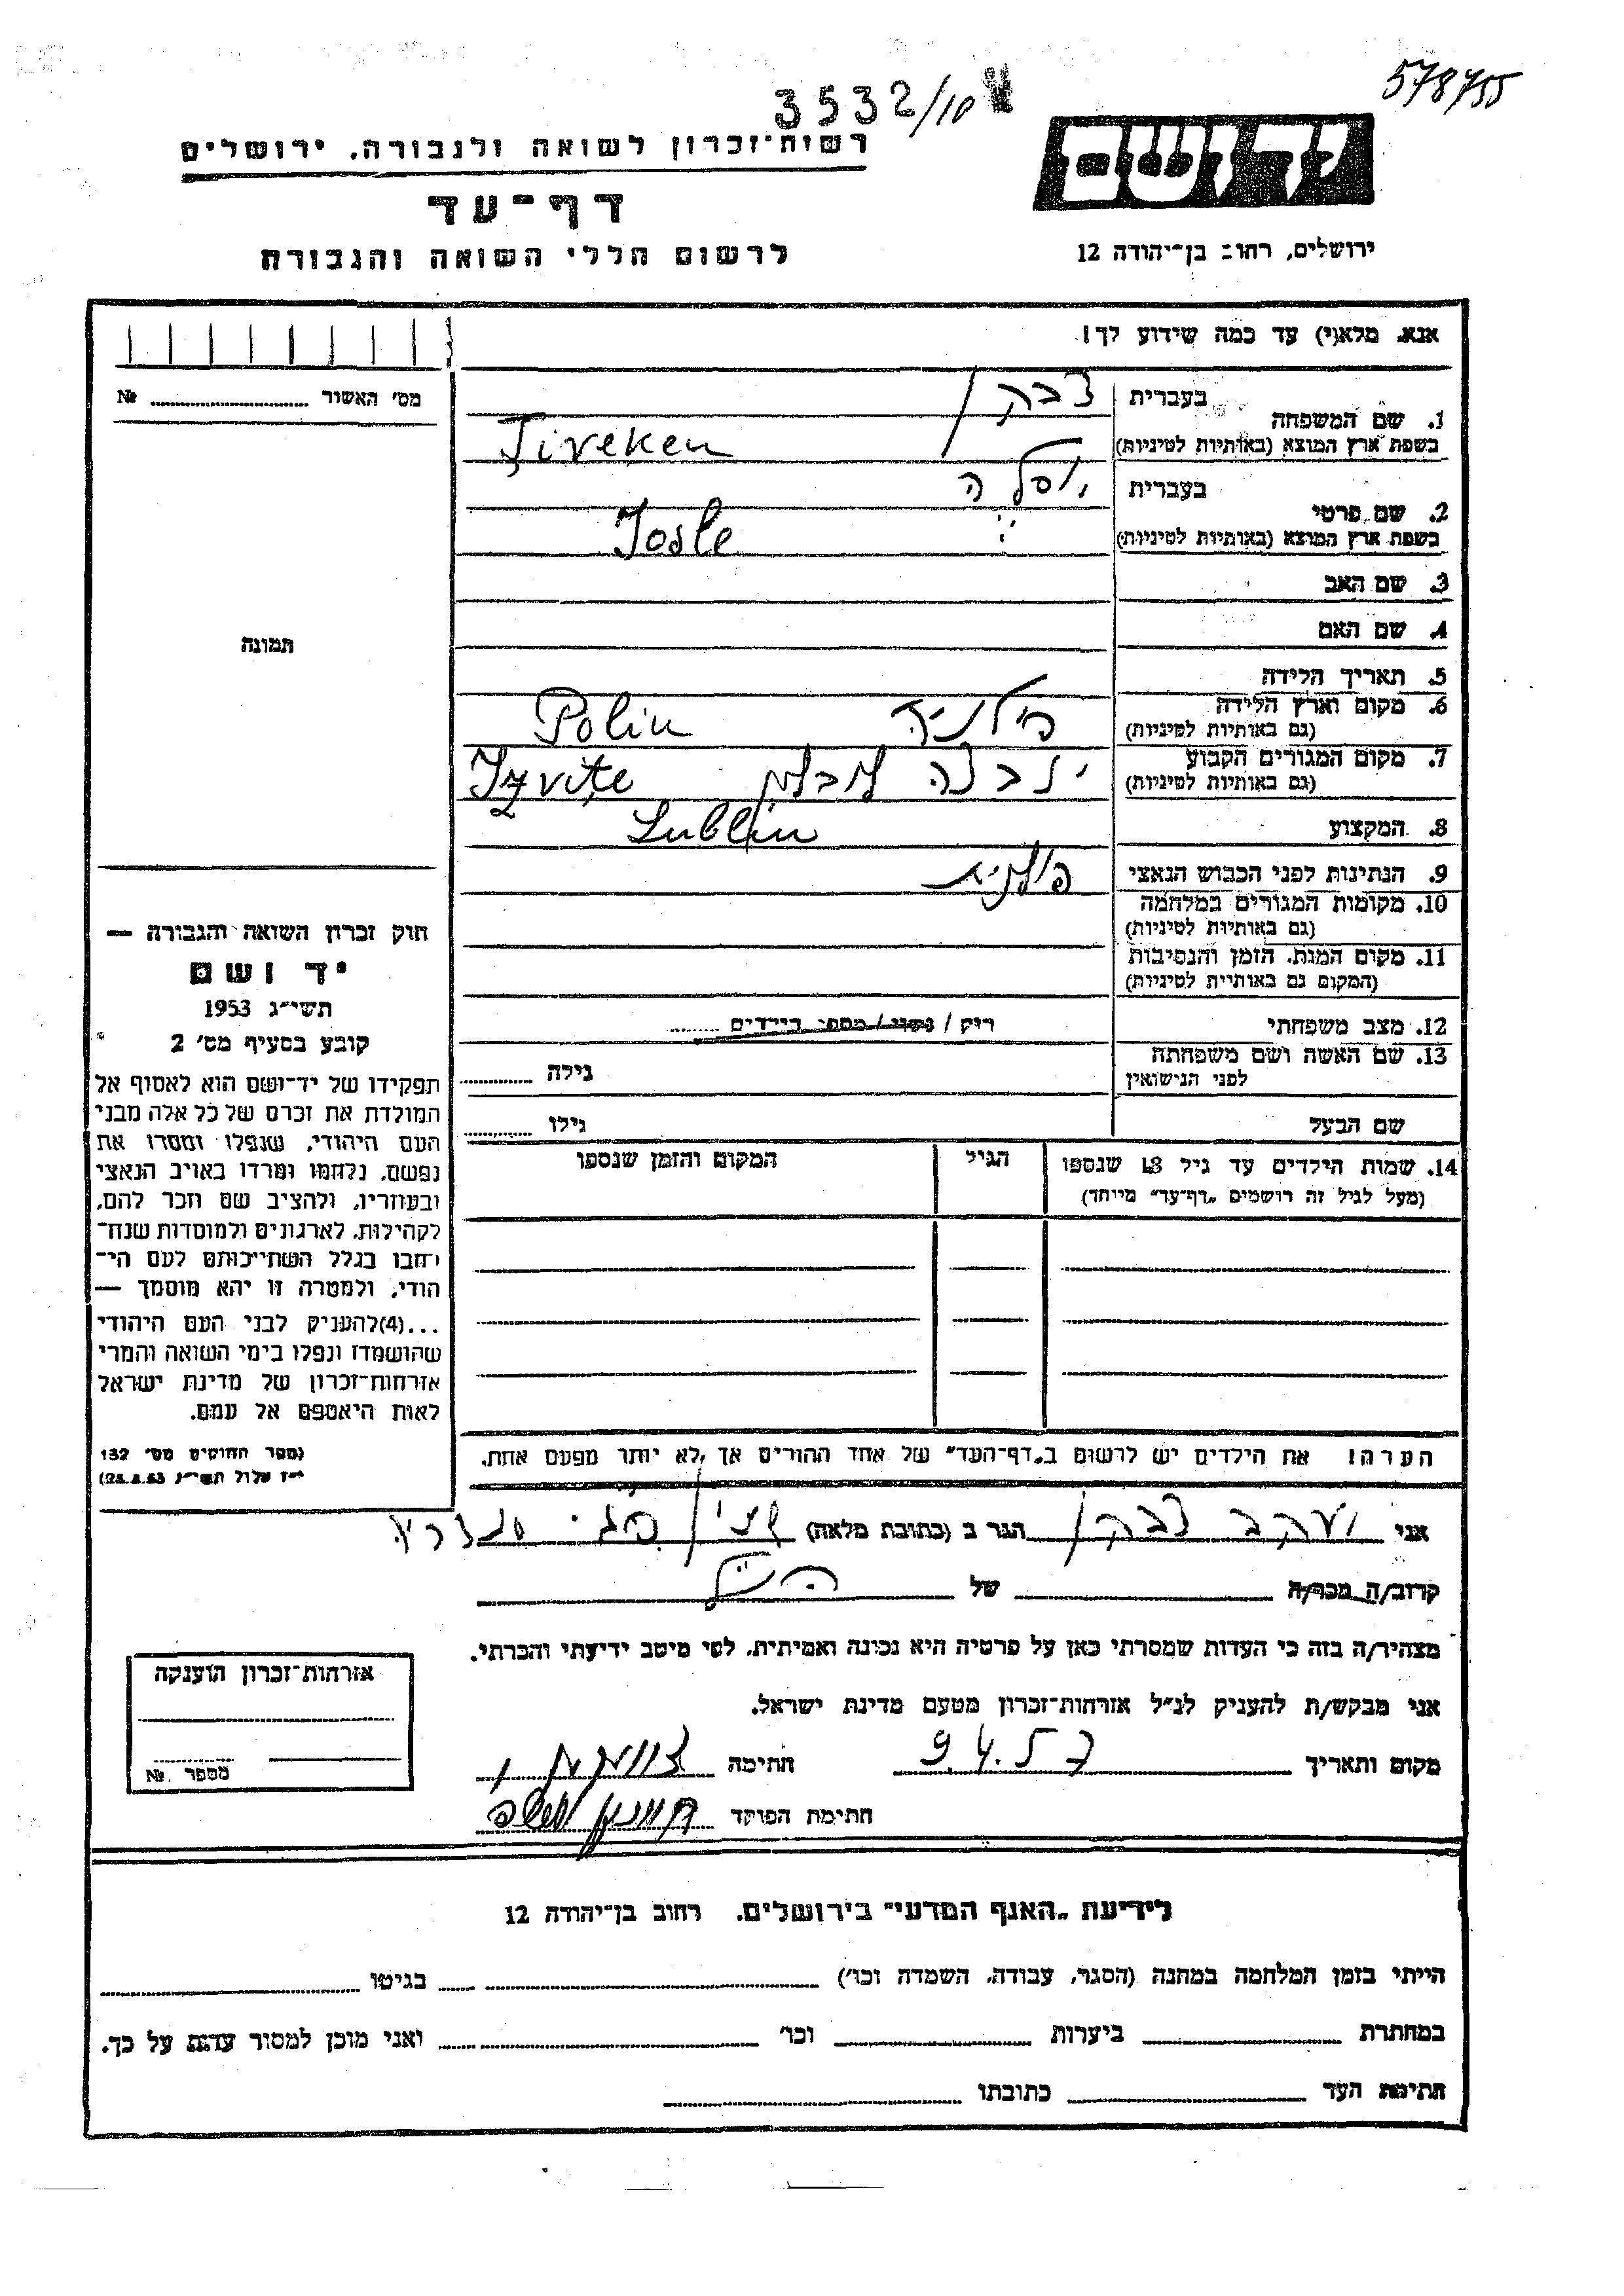 578755
3532/10
יד ושם
רשות־זכרון לשואה ולגבורה, ירושלים
דף־עד
לרשום חללי השואה והגבורה
ירושלים, רחוב בן־יהודה 12
אנא, מלא(י) עד כמה שידוע לך!
מס' האשור № ........
1. שם המשפחה בעברית צבקן
בשפת ארץ המוצא (באותיות לטיניות) Tiveken
2. שם פרטי בעברית יוסלה
בשפת ארץ המוצא (באותיות לטיניות) Josle
3. שם האב
4. שם האם
תמונה
5. תאריך הלידה
6. מקום וארץ הלידה
(גם באותיות לטיניות) פולניה Polin
7. מקום המגורים הקבוע
(גם באותיות לטיניות) יזבצה לובלין Izvite
8. המקצוע Lublin
9. הנתינות לפני הכבוש הנאצי פולנית
10. מקומות המגורים במלחמה
(גם באותיות לטיניות)
11. מקום המות, הזמן והנסיבות
(המקום גם באותיית לטיניות)
12. מצב משפחתי רוק / נשוי / מספר הילדים ........
13. שם האשה ושם משפחתה
לפני הנישואין גילה ........
שם הבעל גילו ........
14. שמות הילדים עד גיל 18 שנספו הגיל המקום והזמן שנספו
(מעל לגיל זה רושמים „דף־עד" מיוחד)
הערה! את הילדים יש לרשום ב„דף־העד" של אחד ההורים אך לא יותר מפעם אחת.
חוק זכרון השואה והגבורה —
יד ושם
תשי"ג 1953
קובע בסעיף מס' 2
תפקידו של יד־ושם הוא לאסוף אל
המולדת את זכרם של כל אלה מבני
העם היהודי, שנפלו ומסרו את
נפשם, נלחמו ומרדו באויב הנאצי
ובעוזריו, ולהציב שם וזכר להם,
לקהילות, לארגונים ולמוסדות שנח־
רבו בגלל השתייכותם לעם הי־
הודי, ולמטרה זו יהא מוסמך —
...(4) להעניק לבני העם היהודי
שהושמדו ונפלו בימי השואה והמרי
אזרחות־זכרון של מדינת ישראל
לאות היאספם אל עמם.
(ספר החוקים מס' 132
י"ז אלול תשי"ג 28.8.53)
אני יעקב צבקן הגר ב (כתובת מלאה)
קרוב/ה מכר/ה של הנ"ל
מצהיר/ה בזה כי העדות שמסרתי כאן על פרטיה היא נכונה ואמיתית, לפי מיטב ידיעתי והכרתי.
אני מבקש/ת להעניק לנ"ל אזרחות־זכרון מטעם מדינת ישראל.
מקום ותאריך 9.4.57 חתימה
חתימת הפוקד
אזרחות־זכרון הוענקה
מספר №
לידיעת „האגף המדעי" בירושלים, רחוב בן־יהודה 12
הייתי בזמן המלחמה במחנה (הסגר, עבודה, השמדה וכו') ........ בגיטו ........
במחתרת ........ ביערות ........ וכו' ........ ואני מוכן למסור עדות על כך.
חתימת העד ........ כתובתו ........